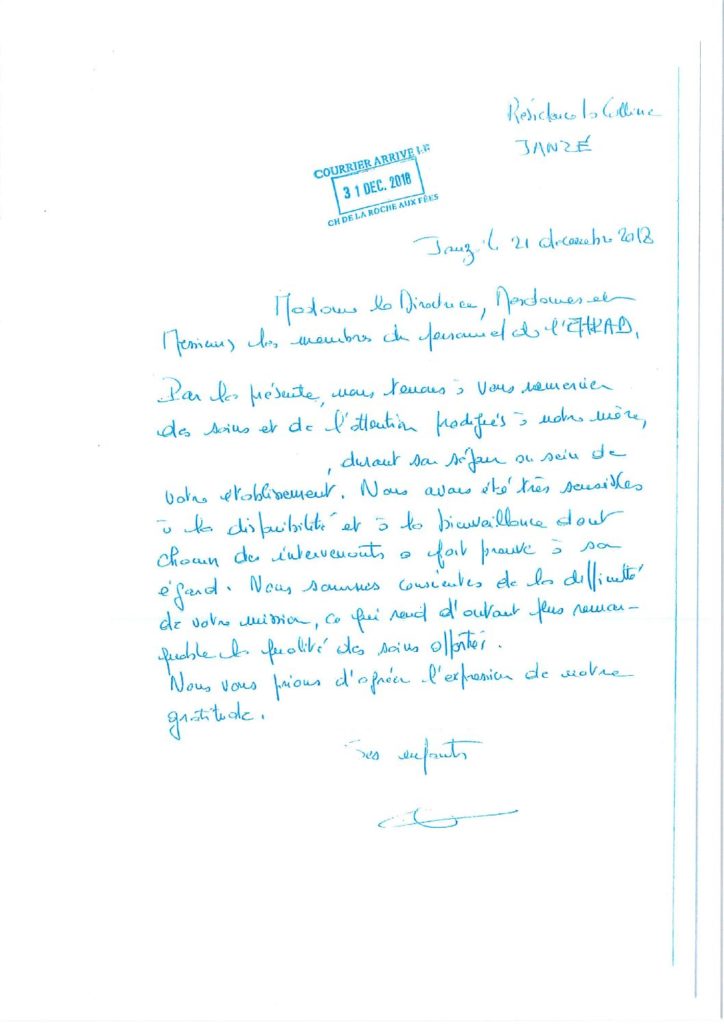 Résidence la Colline
JANZÉ
COURRIER ARRIVÉ LE
31 DEC. 2018
CH DE LA ROCHE AUX FÉES
Janzé le 21 décembre 2018
Madame la Directrice, Mesdames et
Messieurs les membres du personnel de l'EHPAD,
Par la présente, nous tenons à vous remercier
des soins et de l'attention prodigués à notre mère,
, durant son séjour au sein de
votre établissement. Nous avons été très sensibles
à la disponibilité et à la bienveillance dont
chacun des intervenants a fait preuve à son
égard. Nous sommes conscients de la difficulté
de votre mission, ce qui rend d'autant plus remar-
quable la qualité des soins apportés.
Nous vous prions d'agréer l'expression de notre
gratitude.
Ses enfants